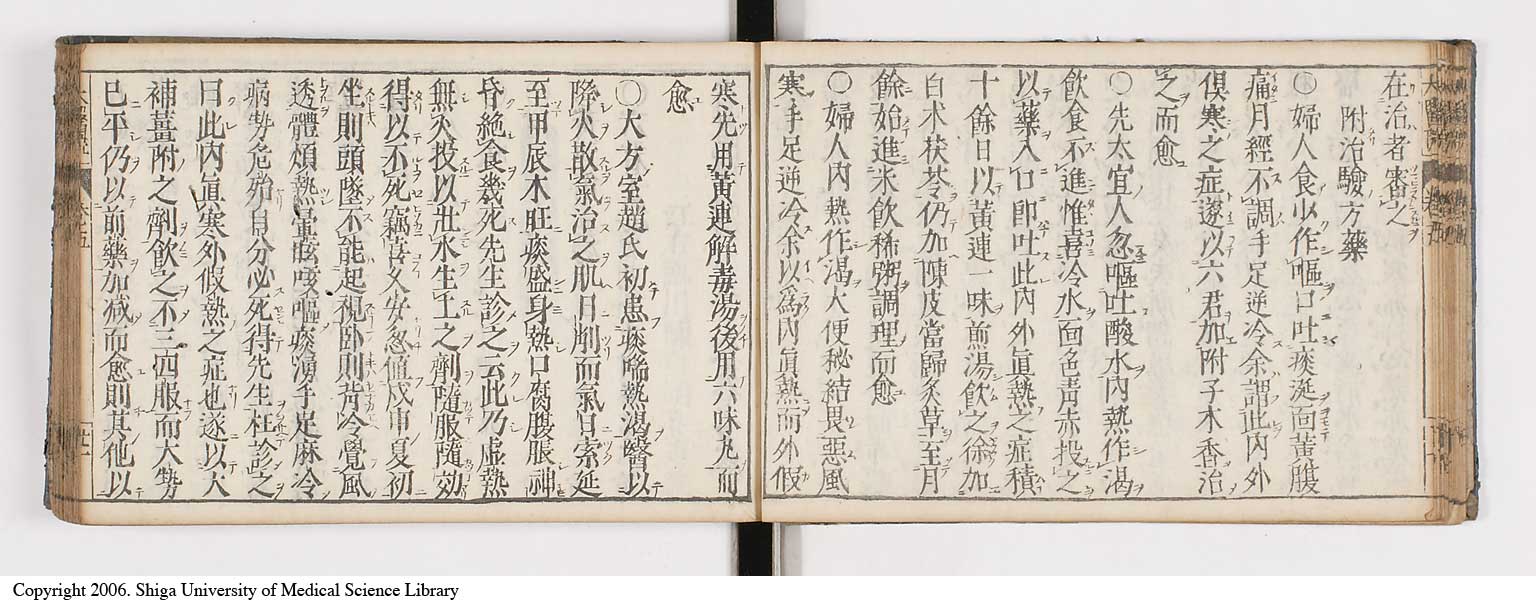 在治者審之
附治驗方藥
〇婦人食少作嘔口吐痰涎面黃腹
痛月經不調手足逆冷余謂此內外
俱寒之症遂以六君加附子木香治
之而愈
〇先太宜人忽嘔吐酸水內熱作渴
飲食不進惟喜冷水面色青赤投之
以藥入口即吐此內外眞熱之症積
十餘日以黃連一味煎湯飲之徐加
白朮茯苓仍加陳皮當歸炙草至月
餘始進米飲稀粥調理而愈
〇婦人內熱作渴大便秘結畏惡風
寒手足逆冷余以爲內眞熱而外假
寒先用黃連解毒湯後用六味丸而
愈
〇大方室趙氏初患痰喘熱渴醫以
降火散氣治之肌日削而氣日索延
至甲辰木旺痰盛身熱口腐腹脹神
昏絶食幾死先生診之云此乃虛熱
無火投以壯水生土之劑隨服隨効
得以不死竊喜又安忽値戊申夏初
坐則頭墜不能起視卧則背冷覺風
透體煩熱暈眩咳嘔痰湧手足麻冷
病勢危殆自分必死得先生枉診之
曰此內眞寒外假熱之症也遂以大
補薑附之劑飲之不三四服而大勢
已平仍以前藥加減而愈則其他以
Copyright 2006. Shiga University of Medical Science Library